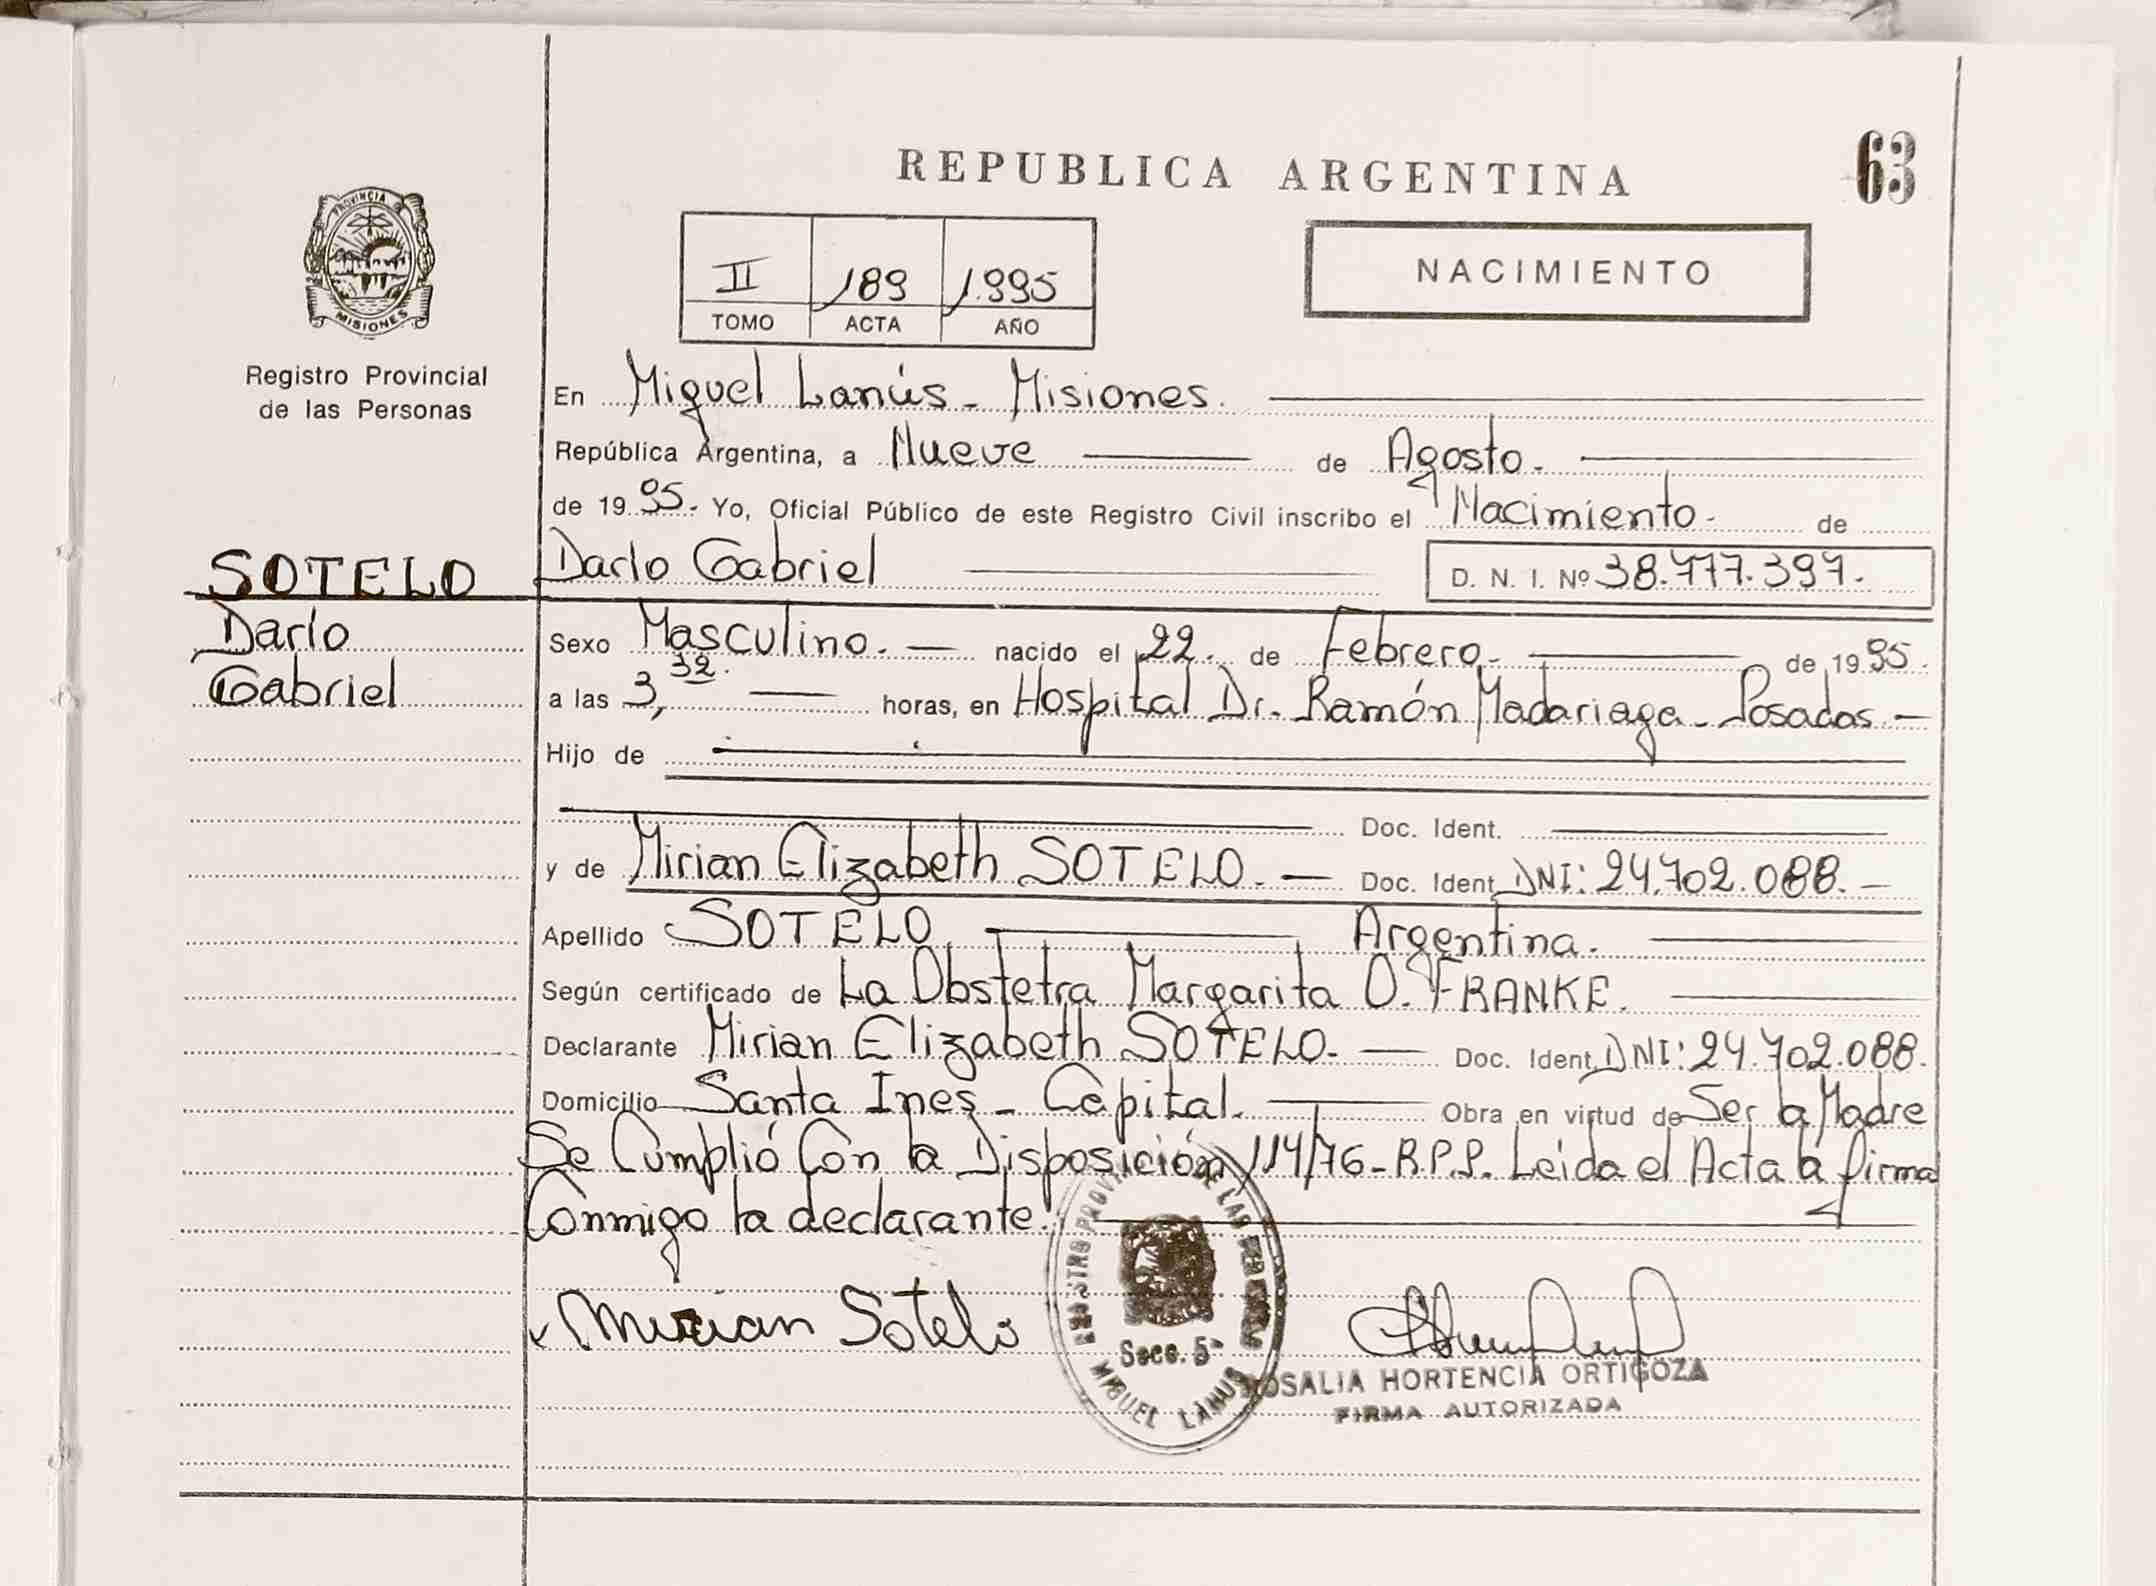 REPUBLICA ARGENTINA
63
PROVINCIA
MISIONES
Registro Provincial
de las Personas
II 189 1.995
TOMO ACTA AÑO
NACIMIENTO
En Miguel Lanús - Misiones.
República Argentina, a Nueve de Agosto.
de 19 95. Yo, Oficial Público de este Registro Civil inscribo el Nacimiento. de
SOTELO
Darío
Gabriel
Darío Gabriel D. N. I. Nº 38.777.397.
Sexo Masculino. nacido el 22. de Febrero. de 19 95.
a las 3,32. horas, en Hospital Dr. Ramón Madariaga - Posadas
Hijo de
Doc. Ident.
y de Mirian Elizabeth SOTELO. Doc. Ident. DNI: 24.702.088.
Apellido SOTELO Argentina.
Según certificado de La Obstetra Margarita O. FRANKE.
Declarante Mirian Elizabeth SOTELO. Doc. Ident. DNI: 24.702.088.
Domicilio Santa Ines - Capital. Obra en virtud de Ser la Madre
Se Cumplió Con la Disposición 114/76 - R.P.P. Leida el Acta la firma
Conmigo la declarante.
Mirian Sotelo
Secc. 5ª
MIGUEL LANUS
ROSALIA HORTENCIA ORTIGOZA
FIRMA AUTORIZADA